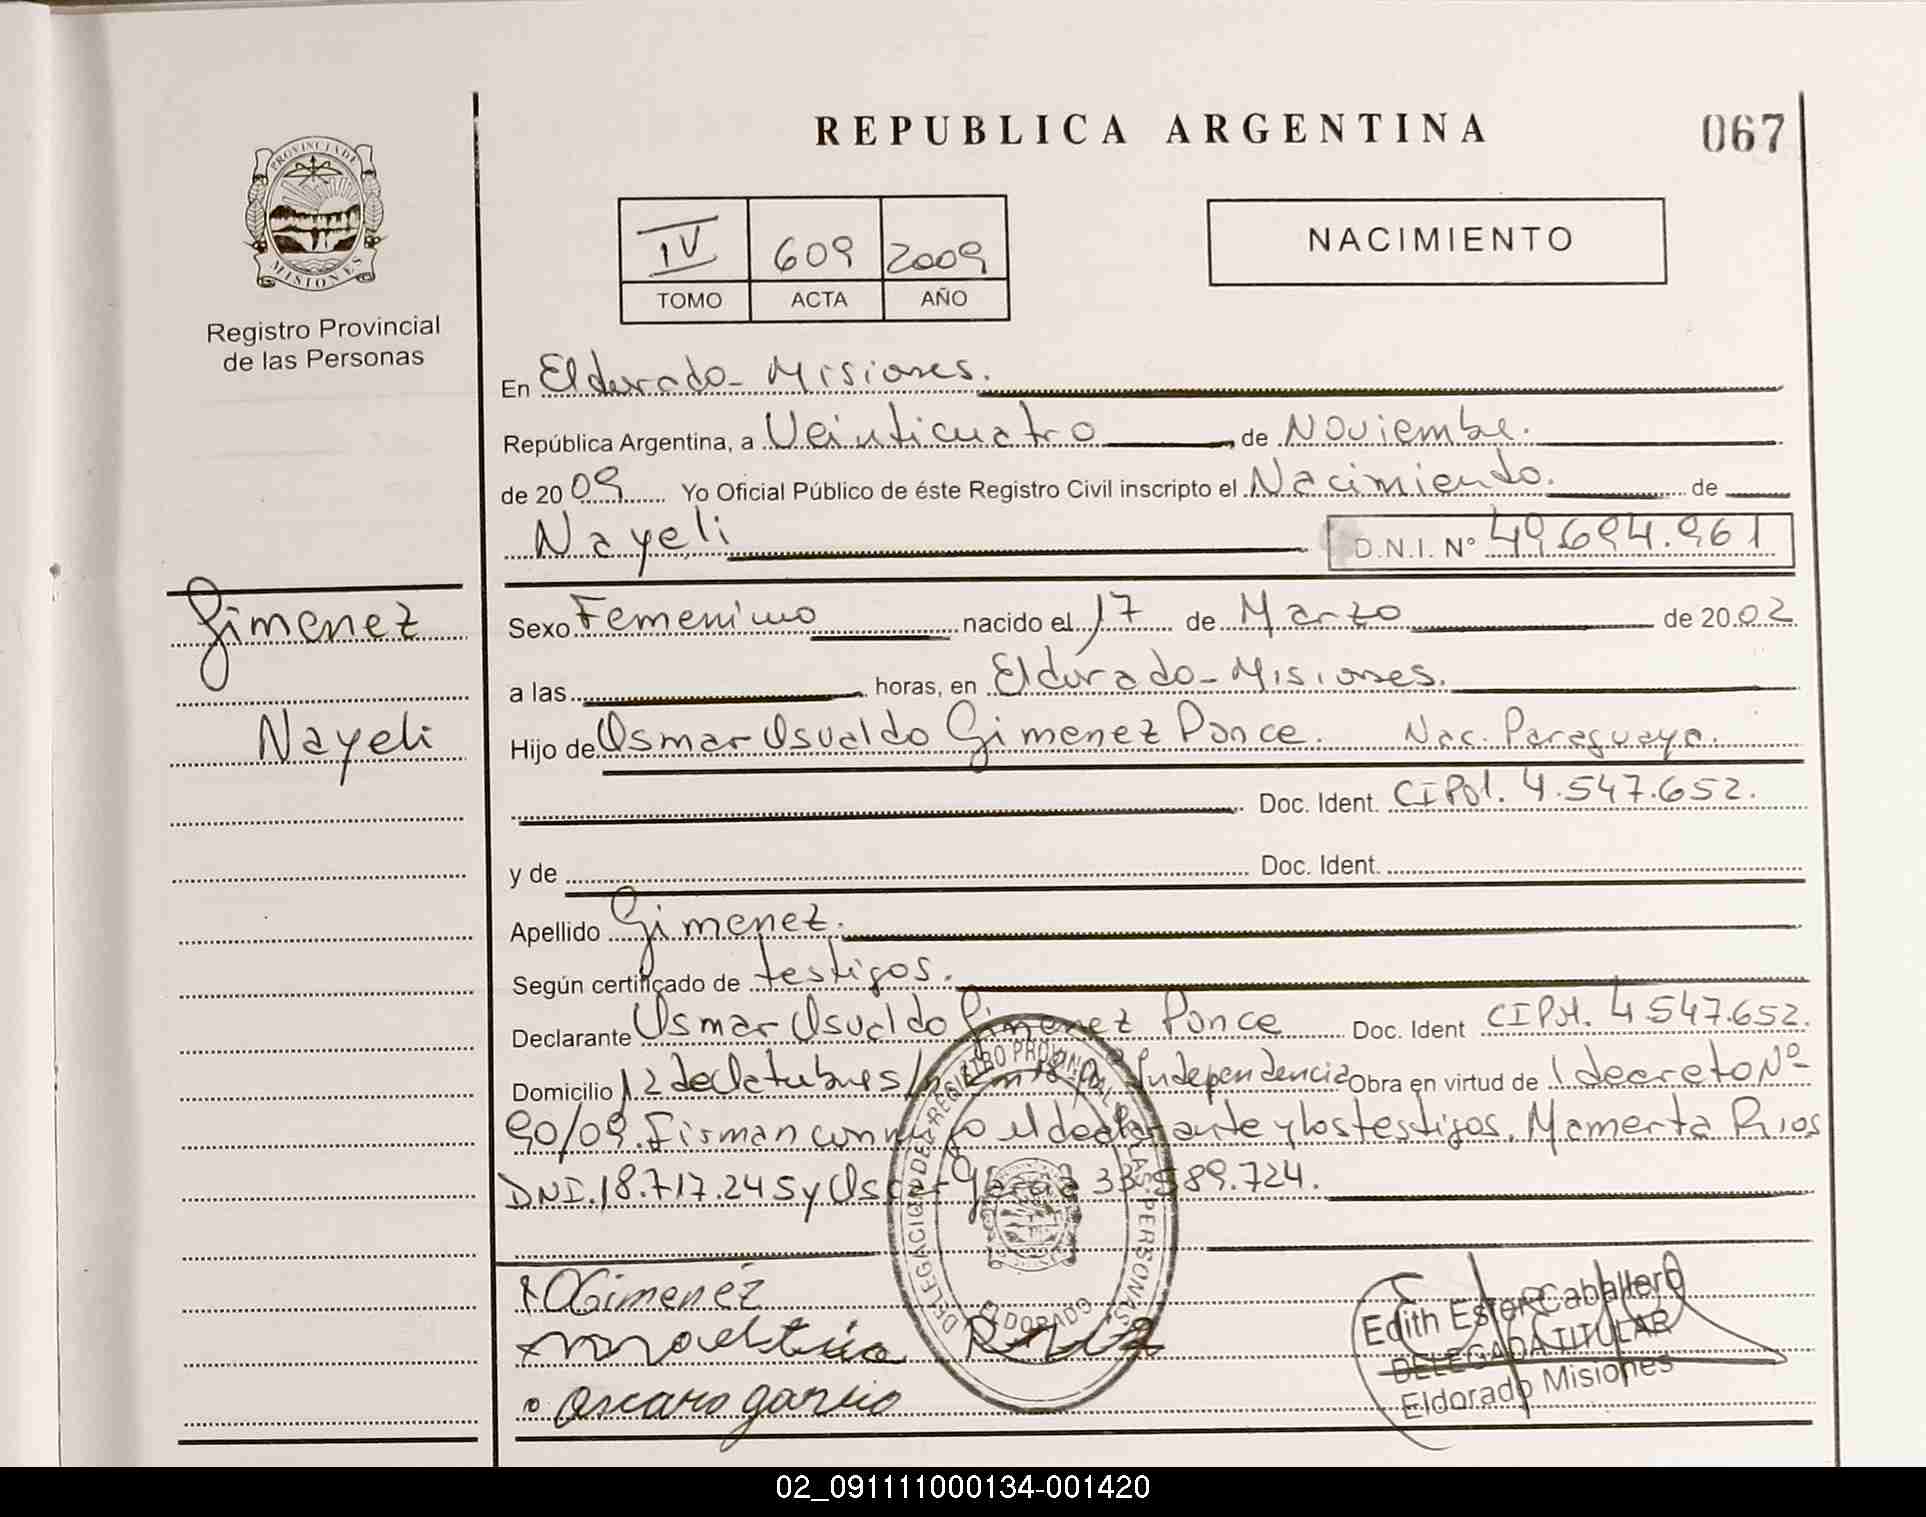 REPUBLICA ARGENTINA
067
PROVINCIA DE
MISIONES
Registro Provincial
de las Personas
IV 609 2009
TOMO ACTA AÑO
NACIMIENTO
En Eldorado - Misiones.
República Argentina, a Veinticuatro de Noviembre.
de 2009 Yo Oficial Público de éste Registro Civil inscripto el Nacimiento. de
Nayeli D.N.I. Nº 49.694.961
Gimenez
Nayeli
Sexo Femenino nacido el 17 de Marzo de 2002
a las horas, en Eldorado - Misiones.
Hijo de Osmar Osvaldo Gimenez Ponce. Nac. Paraguaya.
Doc. Ident. CIPol. 4.547.652.
y de Doc. Ident.
Apellido Gimenez.
Según certificado de testigos.
Declarante Osmar Osvaldo Gimenez Ponce Doc. Ident CIPol. 4.547.652.
Domicilio 12 de Octubre s/n Km 18 Independencia Obra en virtud de 1 decreto Nº
90/09. Firman conmigo el declarante y los testigos. Mamerta Rios
DNI. 18.717.245 y Oscar 33.589.724.
DELEGACION DEL REGISTRO PROVINCIAL DE LAS PERSONAS
ELDORADO
OGimenez
oscar garcia
Edith Ester Caballero
DELEGADA TITULAR
Eldorado Misiones
02_091111000134-001420